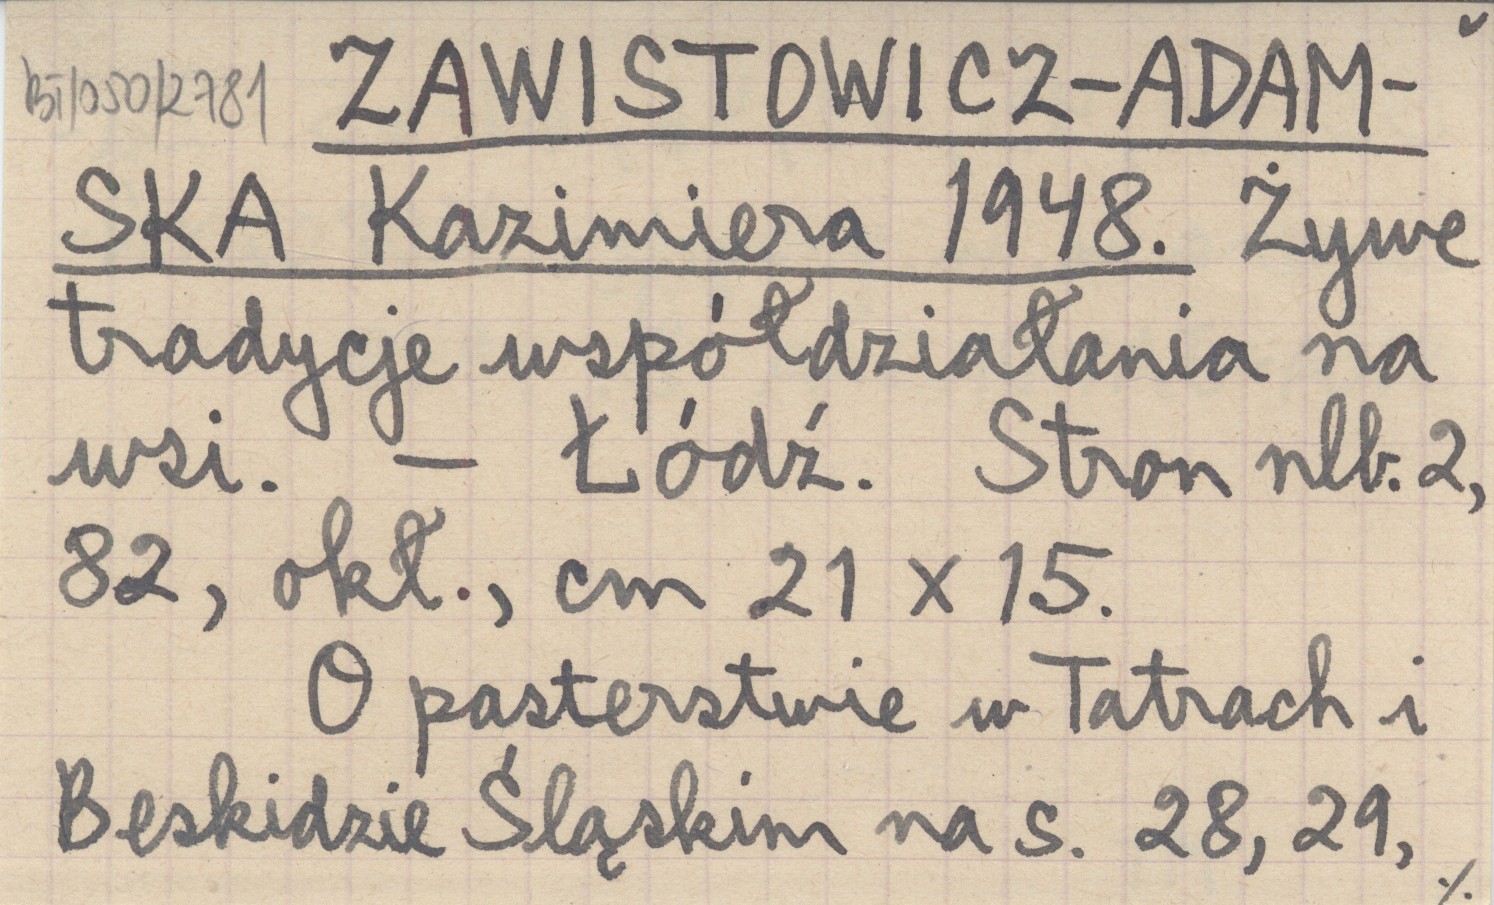 BI/050/2781 ZAWISTOWICZ-ADAM-
SKA Kazimiera 1948. Żywe
tradycje współdziałania na
wsi. — Łódź. Stron nlb. 2,
82, okł., cm 21 x 15.
O pasterstwie w Tatrach i
Beskidzie Śląskim na s. 28, 29,
·/.